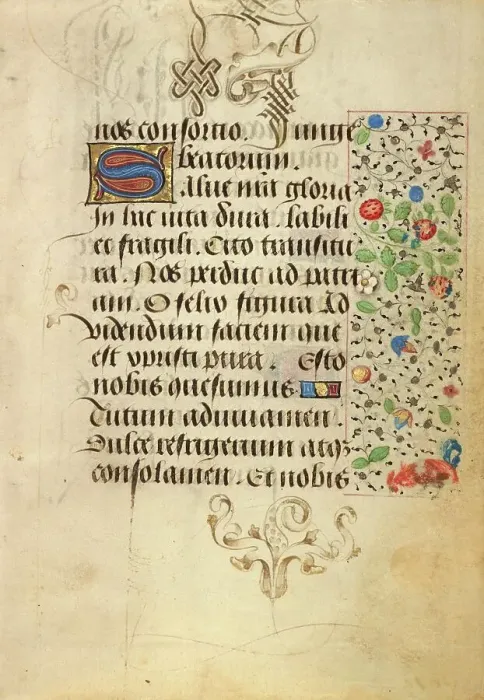 nos consortio. Iunge
beatorum.
Salue nr̃a gloria
In hac uita dura. labili
et fragili. Cito transitu
ra. Nos perduc ad patri
am. O felix figura Ad
videndum faciem que
est xpristi pura. Esto
nobis quesumus
Tutum adiuuamen
Dulce refrigerium atqz
consolamen. Et nobis